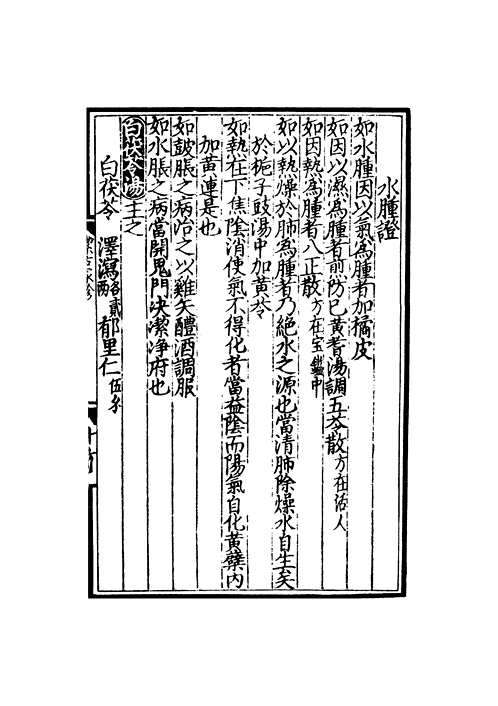 水腫證
如水腫因以氣為腫者加橘皮
如因以濕為腫者煎防已黃耆湯調五苓散方在活人
如因熱為腫者八正散方在宝鑑中
如以熱燥於肺為腫者乃絕水之源也當清肺除燥水自生矣
於梔子豉湯中加黄芩
如熱在下焦陰消使氣不得化者當益陰而陽氣自化黄蘗内
加黄連是也
如皷脹之病治之以雞矢醴酒調服
如水脹之病當開鬼門决潔净府也
白茯苓湯主之
白茯苓　澤瀉各貳兩　郁里仁伍錢